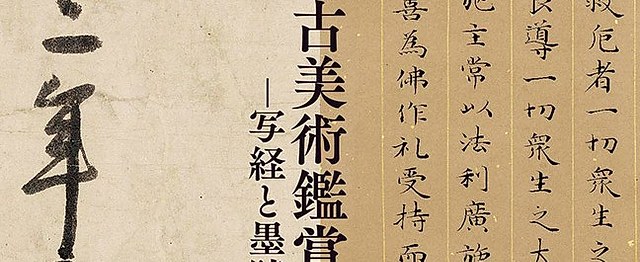 救厄者一切衆生之
良導一切衆生之大
施主常以法利廣施
喜為佛作礼受持而
古美術鑑賞
─写経と墨蹟
二年